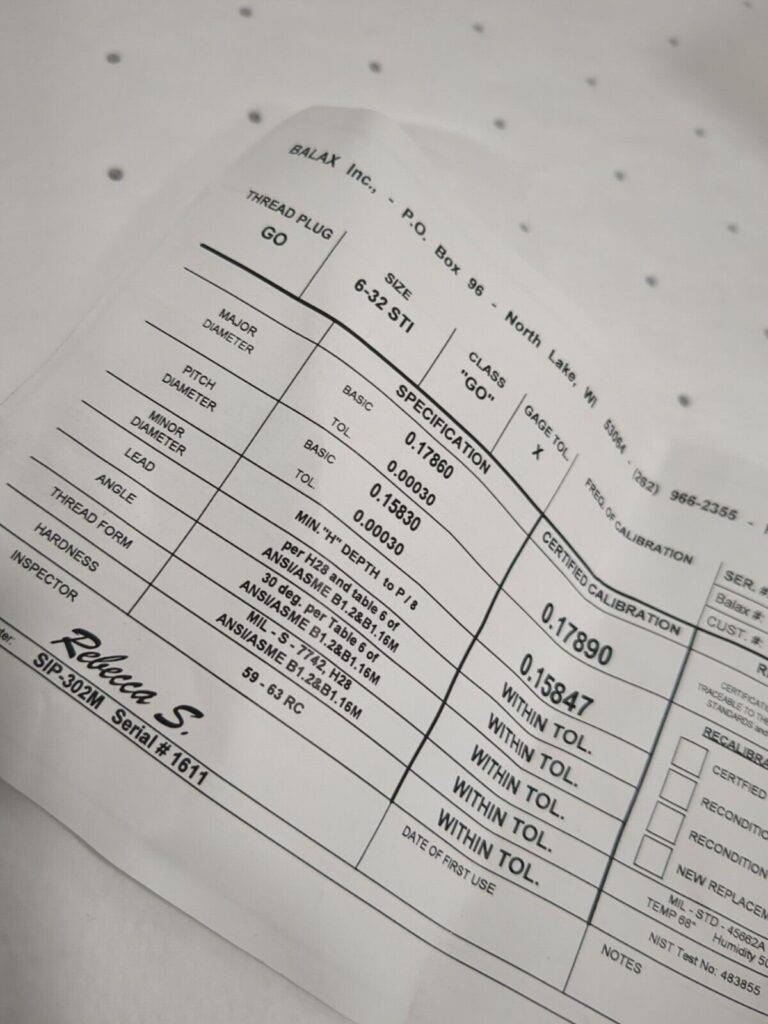 BALAX Inc., - P.O. Box 96 - North Lake, WI 53064 - (262) 966-2355 -
THREAD PLUG
GO
SIZE
6-32 STI
CLASS
"GO"
GAGE TOL.
X
FREQ. OF CALIBRATION
SER. #
Balax #:
CUST. #:
SPECIFICATION
CERTIFIED CALIBRATION
MAJOR
DIAMETER
BASIC 0.17860
TOL. 0.00030
0.17890
PITCH
DIAMETER
BASIC 0.15830
TOL. 0.00030
0.15847
MINOR
DIAMETER
MIN. "H" DEPTH to P / 8
WITHIN TOL.
LEAD
per H28 and table 6 of
ANSI/ASME B1.2&B1.16M
WITHIN TOL.
ANGLE
30 deg. per Table 6 of
ANSI/ASME B1.2&B1.16M
WITHIN TOL.
THREAD FORM
MIL - S - 7742, H28
ANSI/ASME B1.2&B1.16M
WITHIN TOL.
HARDNESS
59 - 63 RC
WITHIN TOL.
INSPECTOR
Rebecca S.
DATE OF FIRST USE
SIP-302M Serial # 1611
TRACEABLE TO THE
STANDARDS and
RECALIBRA
CERTFIED
RECONDITIO
RECONDITION
NEW REPLACEM
MIL - STD - 45662A
TEMP 68° Humidity 50
NIST Test No: 483855
NOTES